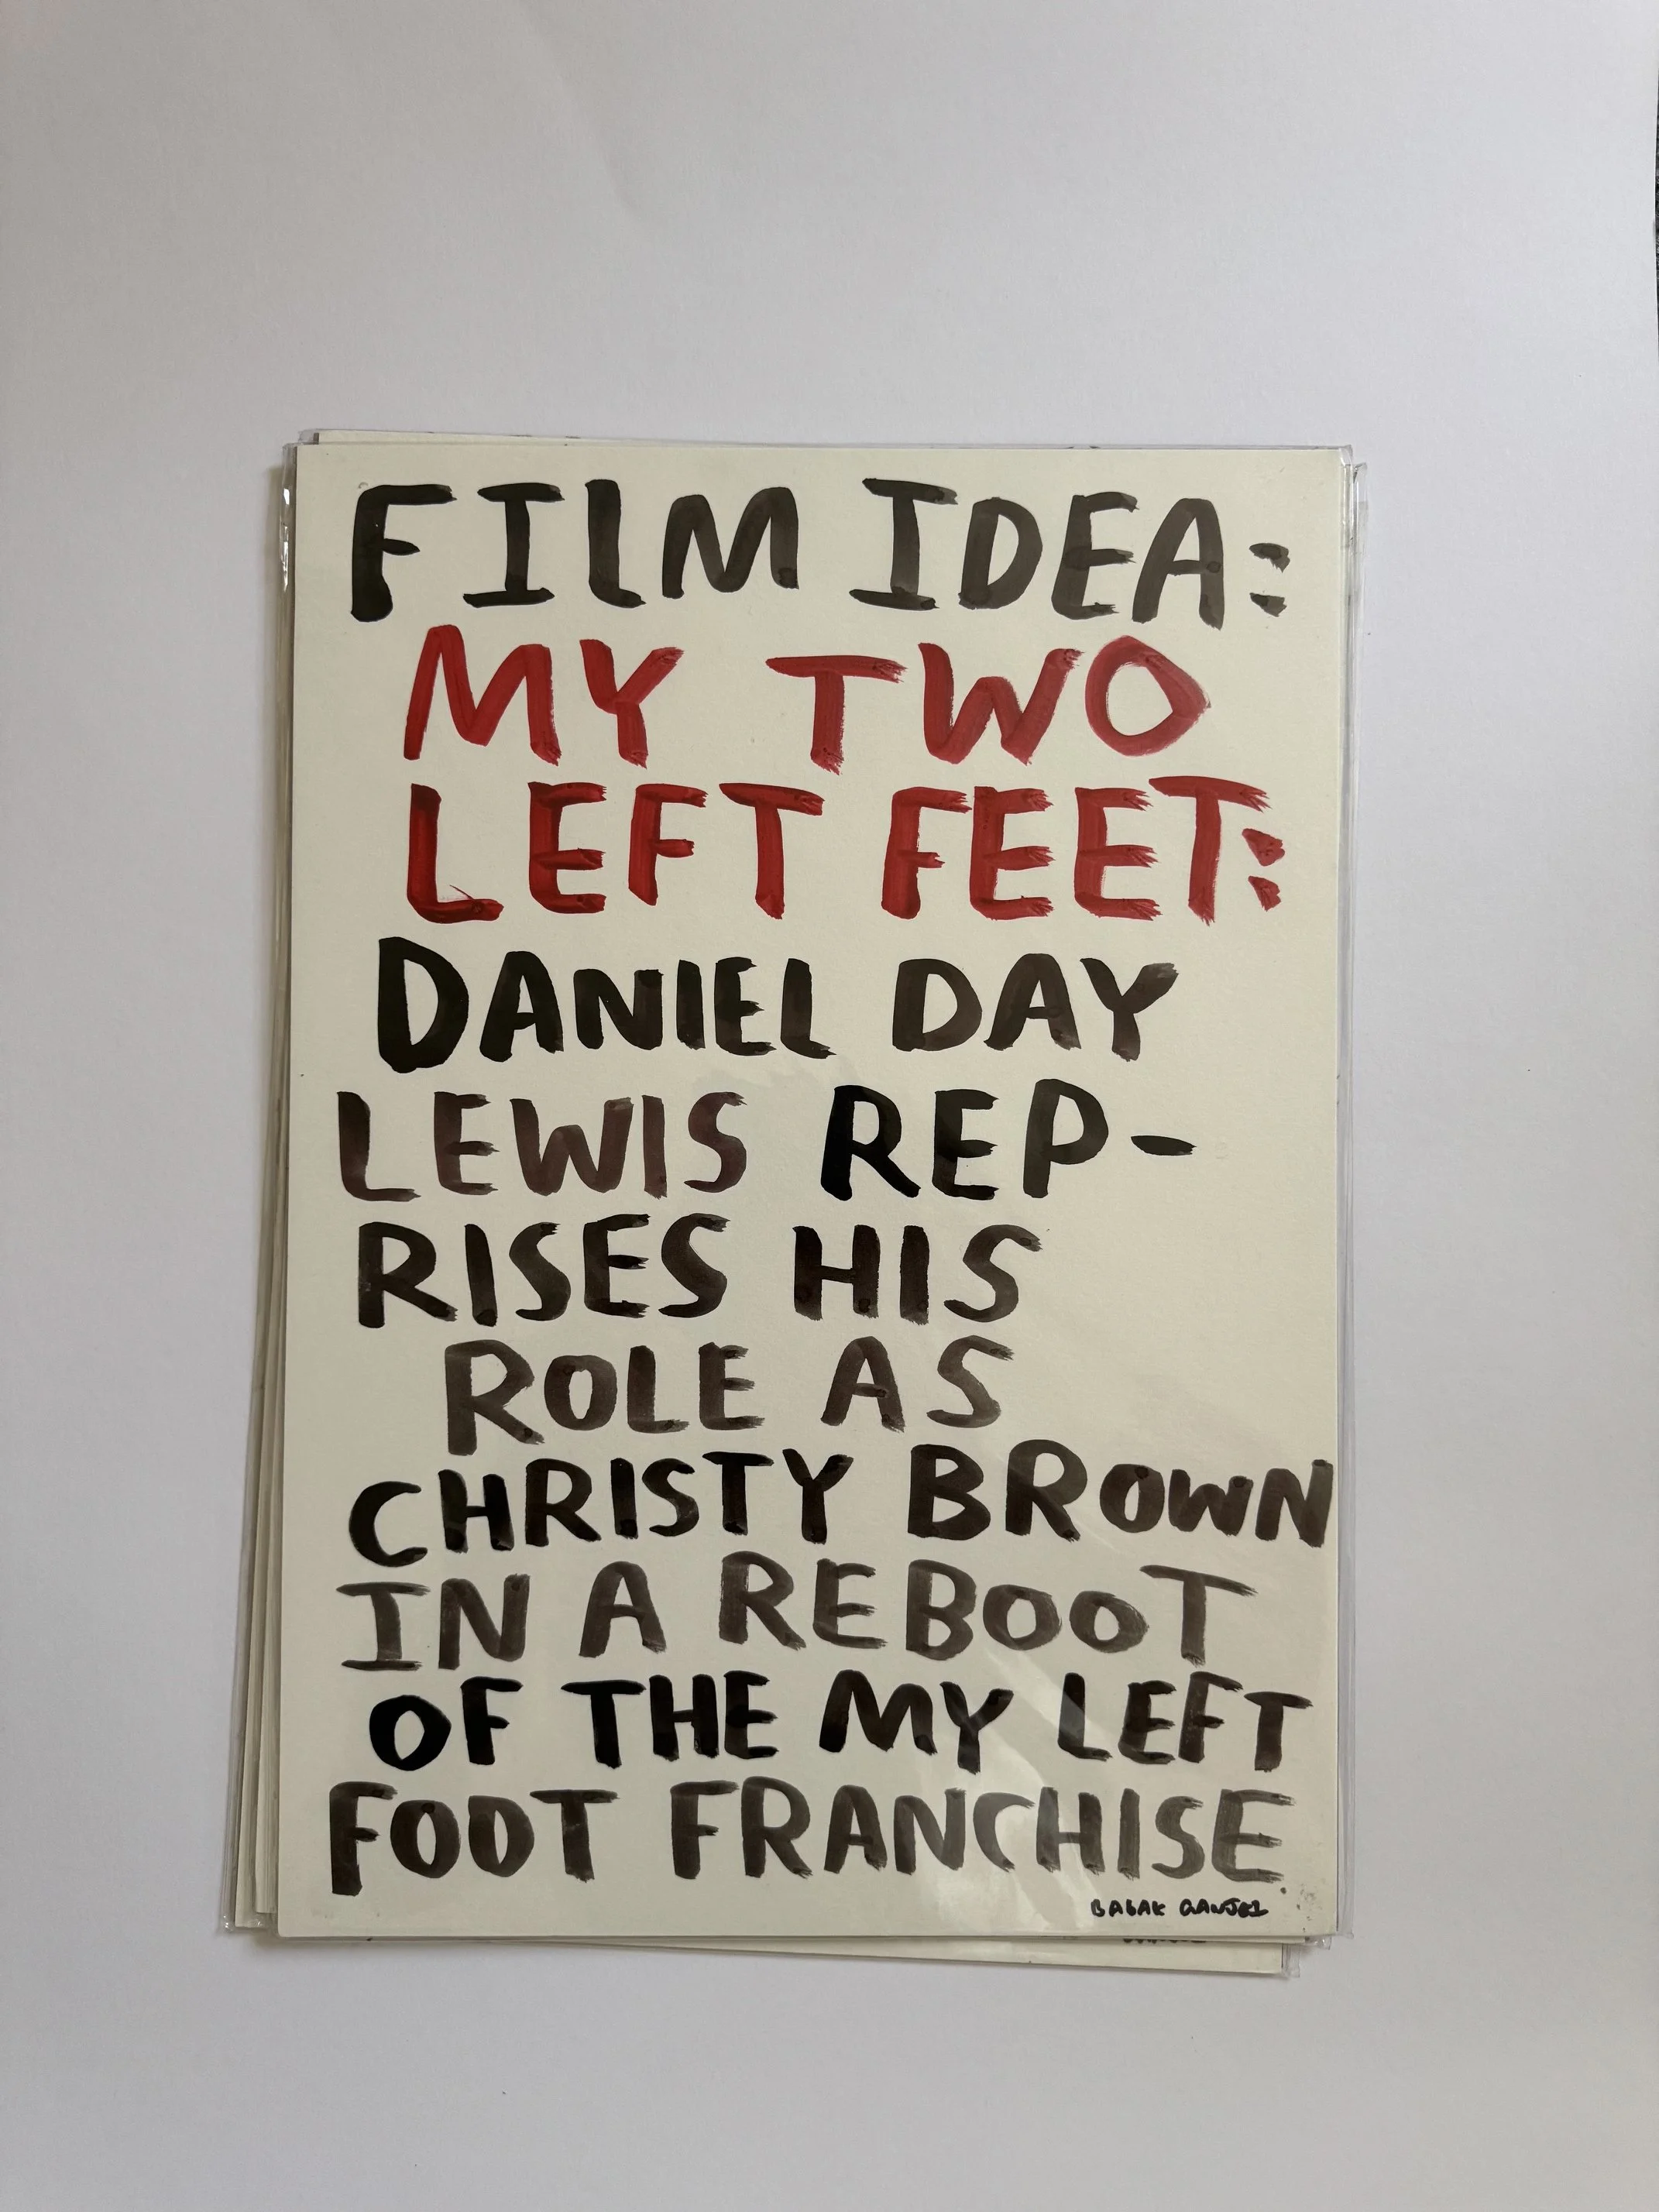 FILM IDEA:
MY TWO
LEFT FEET:
DANIEL DAY
LEWIS REP-
RISES HIS
ROLE AS
CHRISTY BROWN
IN A REBOOT
OF THE MY LEFT
FOOT FRANCHISE.
BABAK GANJEI